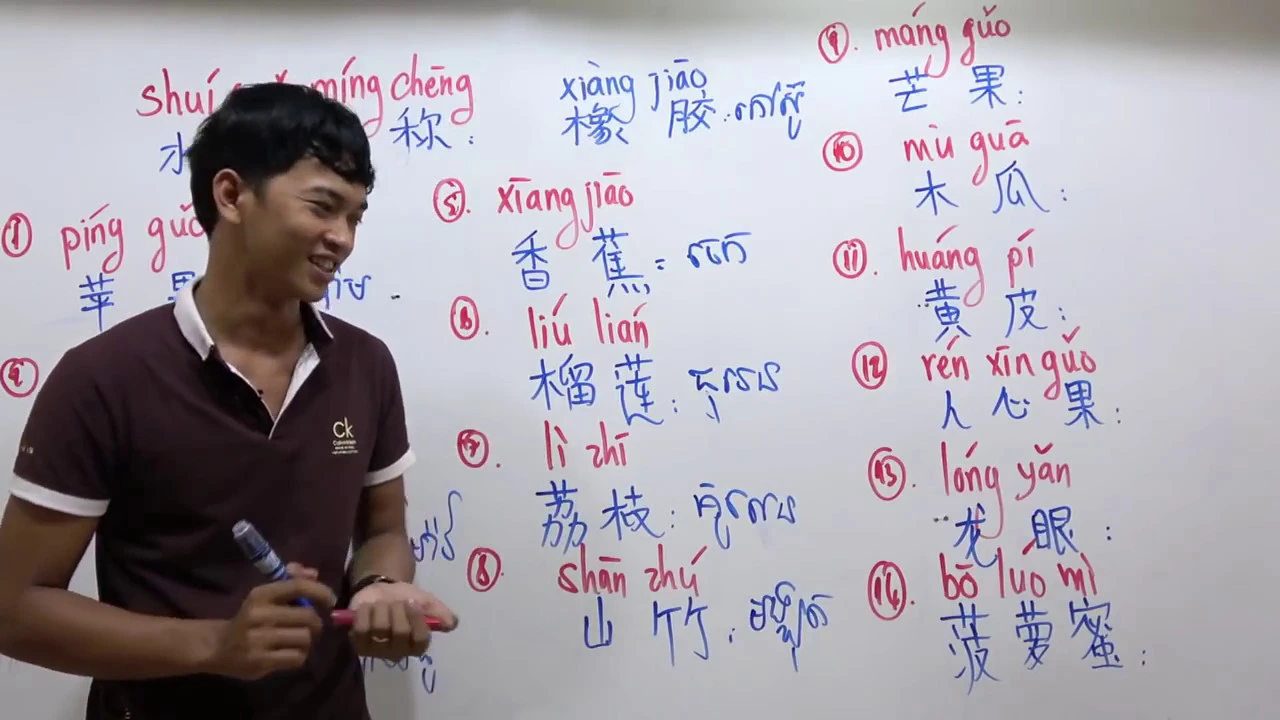 shuí míng chēng
称 :
① píng guǒ
苹
xiàng jiāo
橡 胶 : កៅស៊ូ
xīang jiāo
香 蕉 = ចេក
liú lián
榴 莲 : ធុរេន
lì zhī
荔 枝 : គូលែន
shān zhú
山 竹 : មង្ឃុត
máng guǒ
芒 果 :
mù guā
木 瓜 :
11. huáng pí
黄 皮 :
12 rén xīn guǒ
人 心 果 :
lóng yǎn
龙 眼 :
bō luó mì
菠 萝 蜜 :
ck